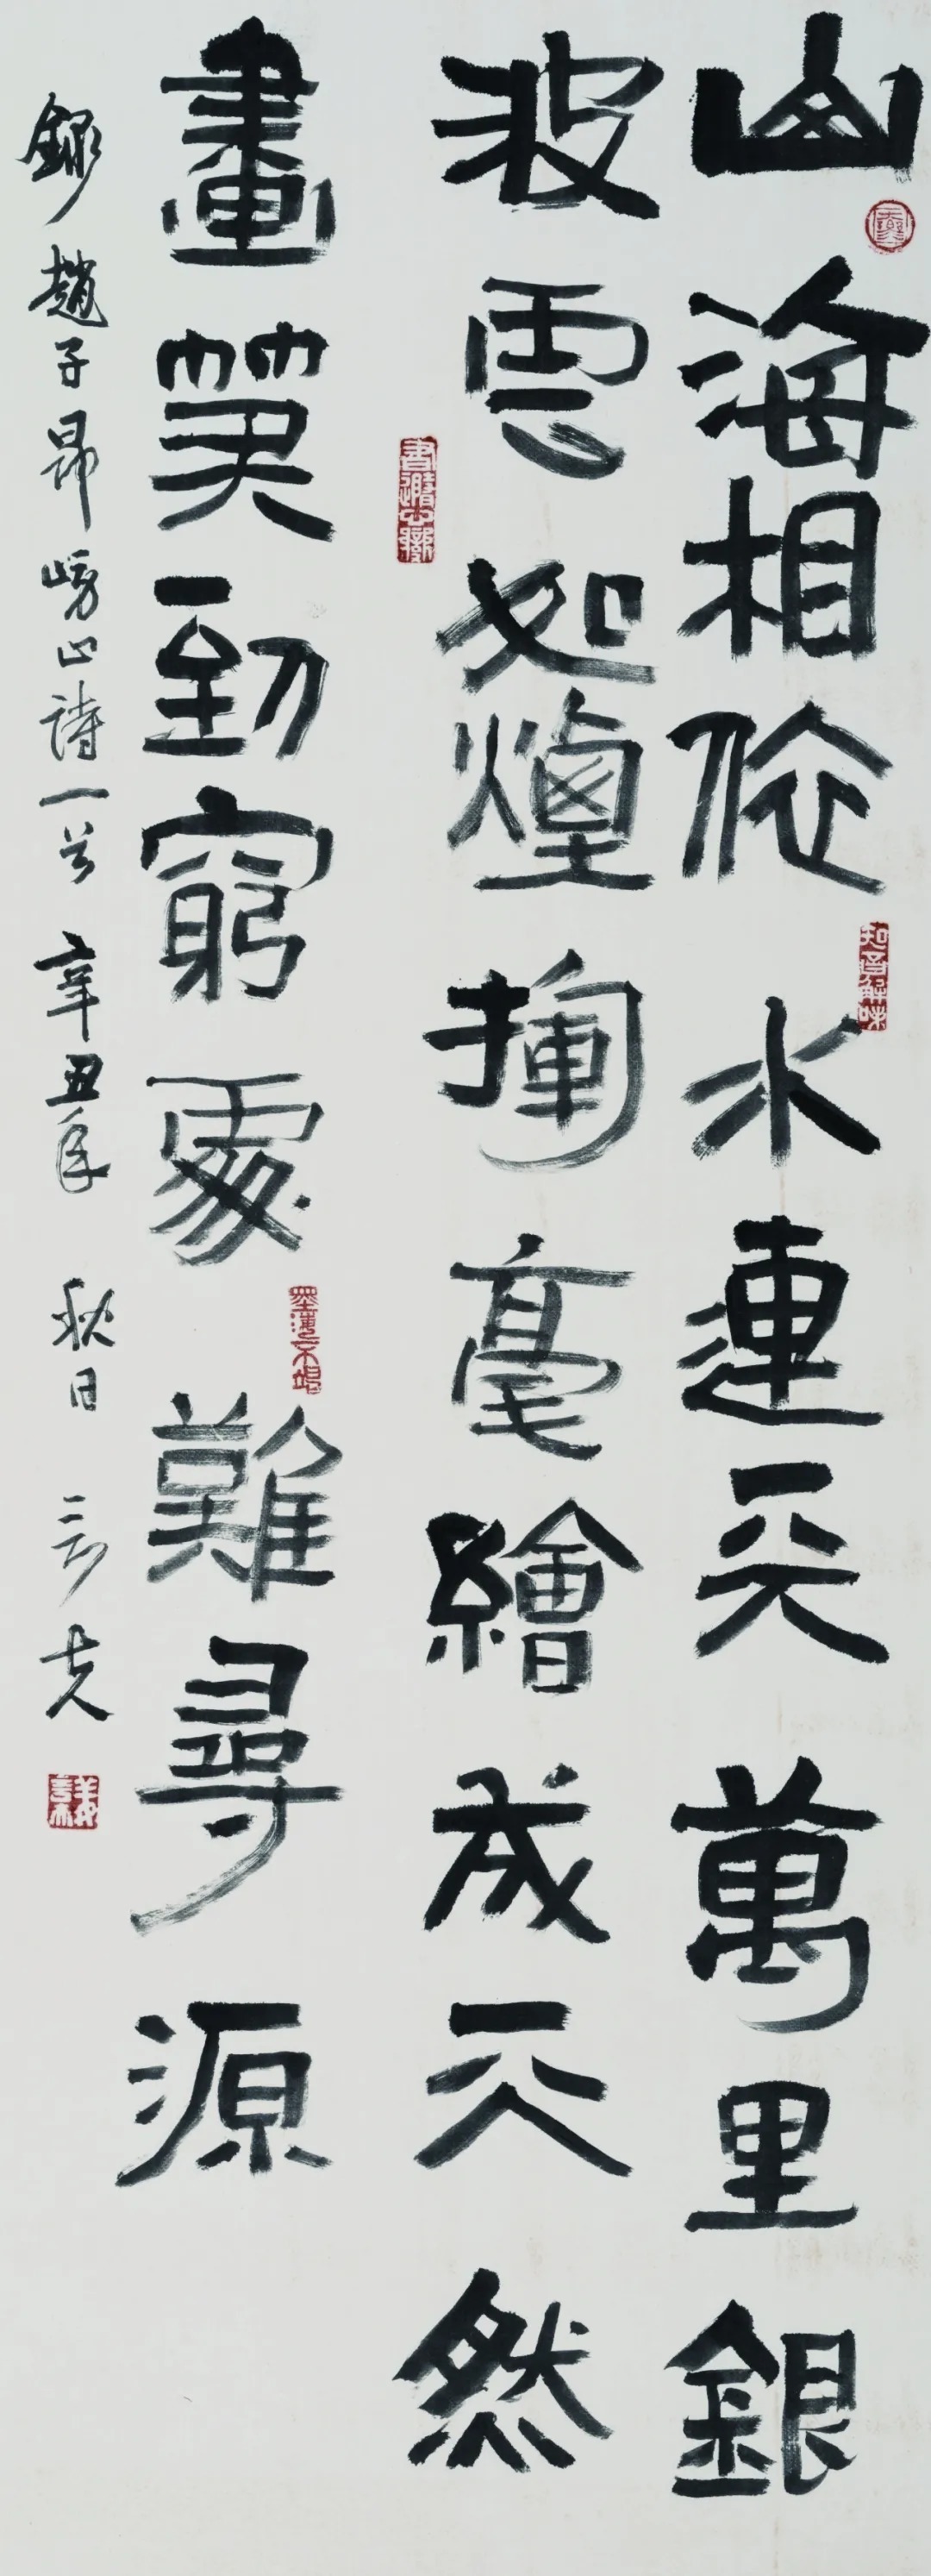 山海相依水連天萬里銀
波雲如煙揮毫繪成天然
畫筆到窮處難尋源
錄趙子昂嶗山詩一首 辛丑年 秋日
知音解味